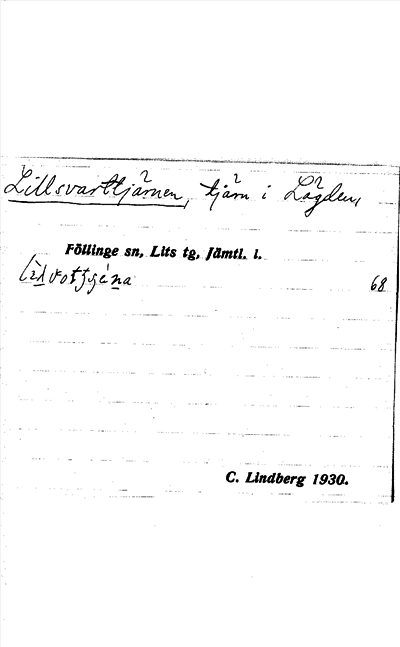 Lillsvarttjärnen, tjärn i Lågden,
Föllinge sn, Lits tg, Jämtl. l.
68
C. Lindberg 1930.